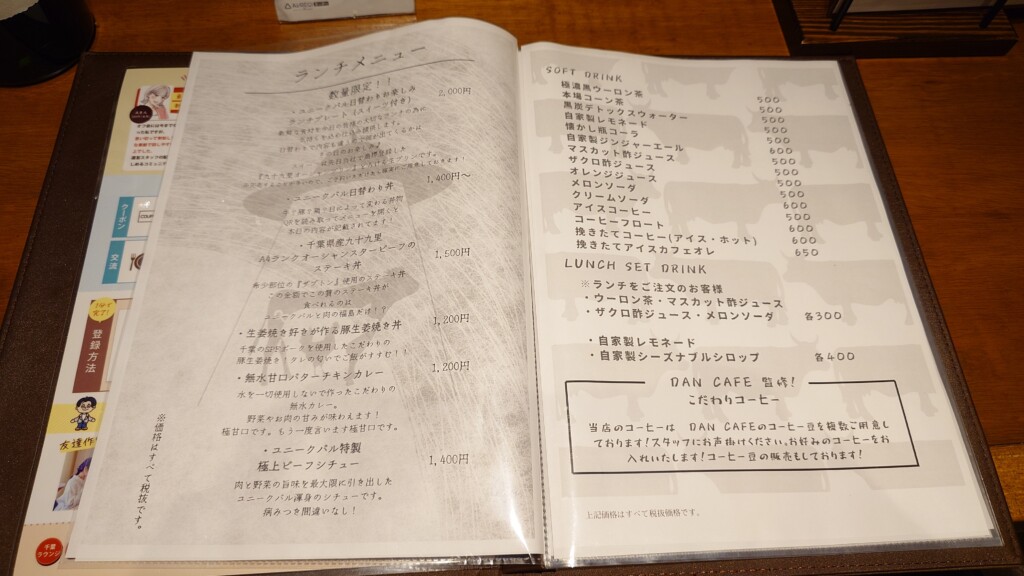 ランチメニュー
数量限定！！
ユニークバル日替わりお楽しみ
ランチプレート（スイーツ付き） 2,000円
・ユニークバル日替わり丼 1,400円～
本日の内容が記載されてます！
・千葉県産九十九里
A4ランクオーシャンスタービーフの
ステーキ丼 1,500円
希少部位の『ザブトン』使用のステーキ丼
この金額でこの質のステーキ丼が
食べれるのは
ユニークバルと肉の福島だけ！！
・生姜焼き好きが作る豚生姜焼き丼 1,200円
豚生姜焼き！タレの匂いでご飯がすすむ！！
・無水甘口バターチキンカレー 1,200円
水を一切使用しないで作ったこだわりの
無水カレー。
野菜やお肉の甘みが味わえます！
極甘口です。もう一度言います極甘口です。
・ユニークバル特製
極上ビーフシチュー 1,400円
肉と野菜の旨味を最大限に引き出した
ユニークバル渾身のシチューです。
病みつき間違いなし！
※価格はすべて税抜です。
SOFT DRINK
極濃黒ウーロン茶 500
本場コーン茶 500
黒炭デトックスウォーター 500
自家製レモネード 500
懐かし瓶コーラ 500
自家製ジンジャーエール 600
マスカット酢ジュース 500
ザクロ酢ジュース 500
オレンジジュース 500
メロンソーダ 500
クリームソーダ 600
アイスコーヒー 500
コーヒーフロート 600
挽きたてコーヒー(アイス・ホット) 600
挽きたてアイスカフェオレ 650
LUNCH SET DRINK
※ランチをご注文のお客様
・ウーロン茶・マスカット酢ジュース
・ザクロ酢ジュース・メロンソーダ 各300
・自家製レモネード
・自家製シーズナブルシロップ 各400
DAN CAFE 監修！
こだわりコーヒー
当店のコーヒーは DAN CAFEのコーヒー豆を複数ご用意し
ております！スタッフにお声掛けください。お好みのコーヒーをお
入れいたします！コーヒー豆の販売もしております！
上記価格はすべて税抜価格です。
クーポン
交流
登録方法
友達作
千葉
ラウンジ